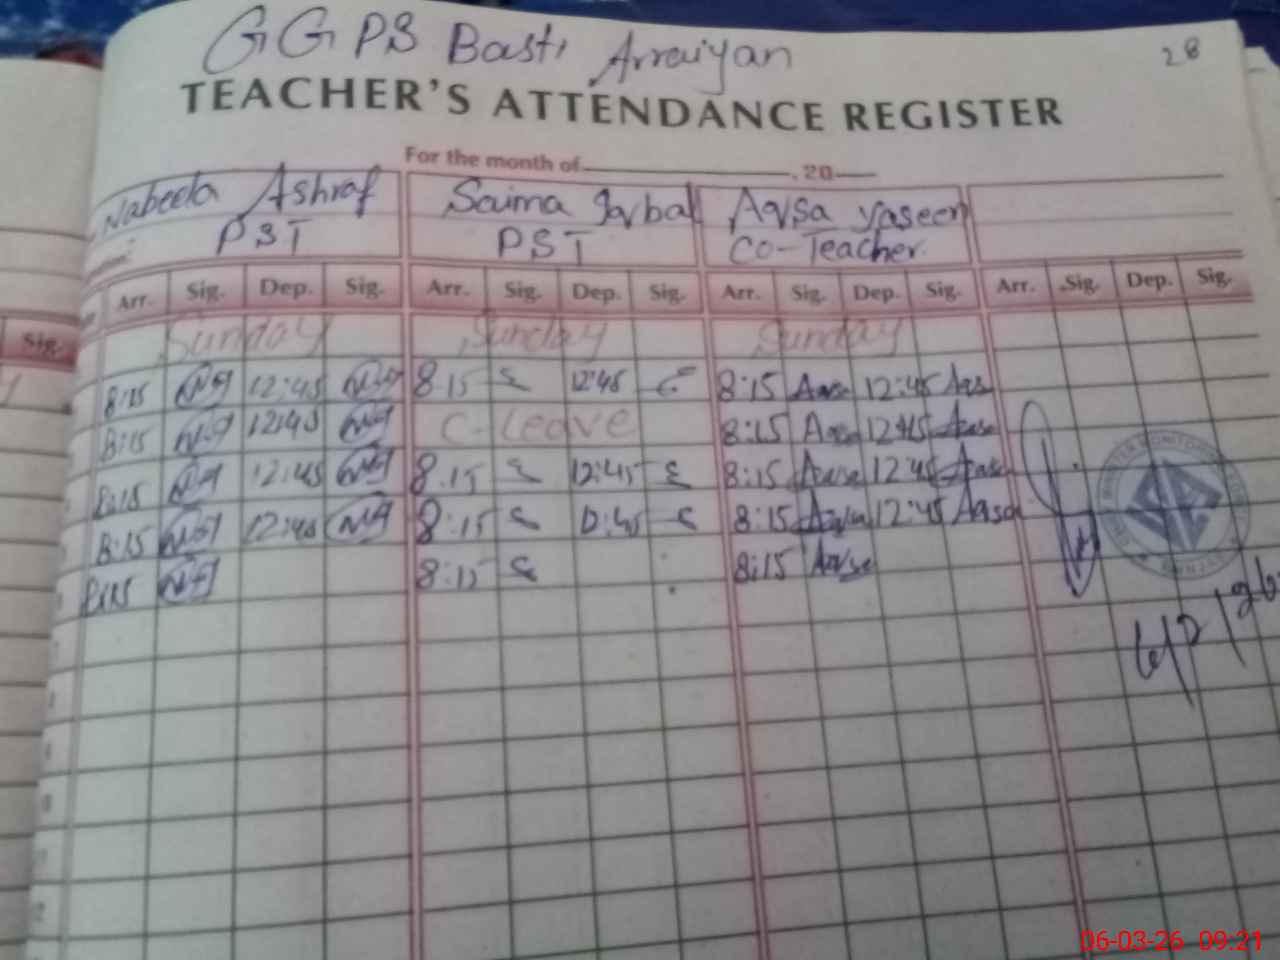 GGPS Basti Arraiyan
28
TEACHER'S ATTENDANCE REGISTER
For the month of , 20
Nabeela Ashraf Saima Iqbal Aqsa Yaseen
PST PST Co-Teacher.
Arr. Sig. Dep. Sig. Arr. Sig. Dep. Sig. Arr. Sig. Dep. Sig. Arr. Sig. Dep. Sig.
Sig.
Sunday Sunday Sunday
8:15 12:45 8:15 12:45 8:15 Aqsa 12:45 Aqs
8:15 12:45 C-Leave 8:15 Aqsa 12:45 Aqsa
8:15 12:45 8:15 12:45 8:15 Aqsa 12:45 Aqsa
8:15 12:45 8:15 12:45 8:15 Aqsa 12:45 Aqsa
8:15 8:15 8:15 Aqsa
06-03-26 09:21